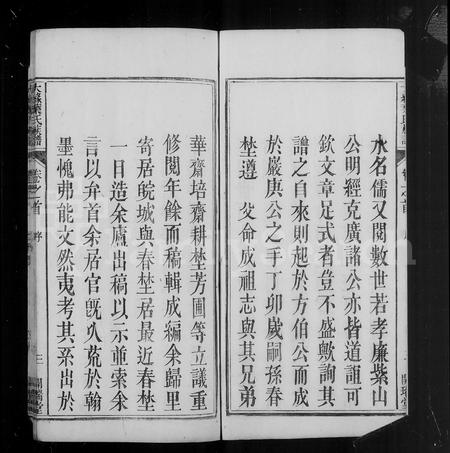 水名儒又閱數世若孝廉紫山
公明經克廣諸公亦皆道誼可
欽文章足式者豈不盛歟詢其
譜之自來則起於方伯公而成
於嚴庚公之手丁卯歲嗣孫春
埜遵 父命成祖志與其兄弟
華齋培齋耕埜芳圃等立議重
修閱年餘而稿輯成編余歸里
寄居皖城與春埜居最近春埜
一日造余廬出稿以示並索余
言以弁首余居官旣久荒於翰
墨愧弗能文然夷考其系出於
氏
卷之首 序
三